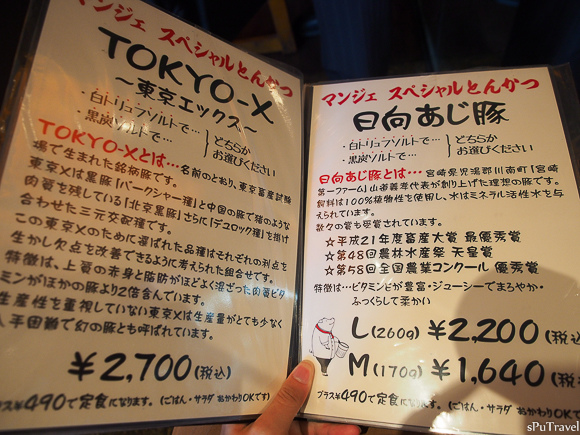 マンジェ スペシャルとんかつ
TOKYO-X
～東京エックス～
・白トリュフソルトで…
・黒炭ソルトで…
どちらか
お選びください
TOKYO-Xとは…名前のとおり、東京畜産試験
場で生まれた銘柄豚です。
東京Xは黒豚「バークシャー種」と中国の豚で猪のような
肉質を残している「北京黒豚」さらに「デュロック種」を掛け
合わせた三元交配種です。
この東京Xのために選ばれた品種はそれぞれの利点を
生かし欠点を改善できるように考えられた組合せです。
特徴は、上質の赤身と脂肪がほどよく混ざった肉質ビタ
ミンがほかの豚より2倍含んでいます。
生産性を重視していない東京Xは生産量がとても少なく
入手困難で幻の豚とも呼ばれています。
¥2,700(税込)
プラス¥490で定食になります。(ごはん・サラダ おかわりOKです)
マンジェ スペシャルとんかつ
日向あじ豚
・白トリュフソルトで…
・黒炭ソルトで…
どちらか
お選びください
日向あじ豚とは…宮崎県児湯郡川南町「宮崎
第一ファーム」山道義孝代表が創り上げた理想の豚です。
飼料は100%植物性を使用し、水はミネラル活性水を与
えられています。
数々の賞も受賞されています。
☆平成21年度畜産大賞 最優秀賞
☆第48回農林水産祭 天皇賞
☆第58回全国農業コンクール 優秀賞
特徴は…ビタミンが豊富・ジューシーでまろやか・
ふっくらして柔かい
L(260g) ¥2,200(税込)
M(170g) ¥1,640(税込)
プラス¥490で定食になります。(ごはん・サラダ おかわりOKです)
sPuTravel